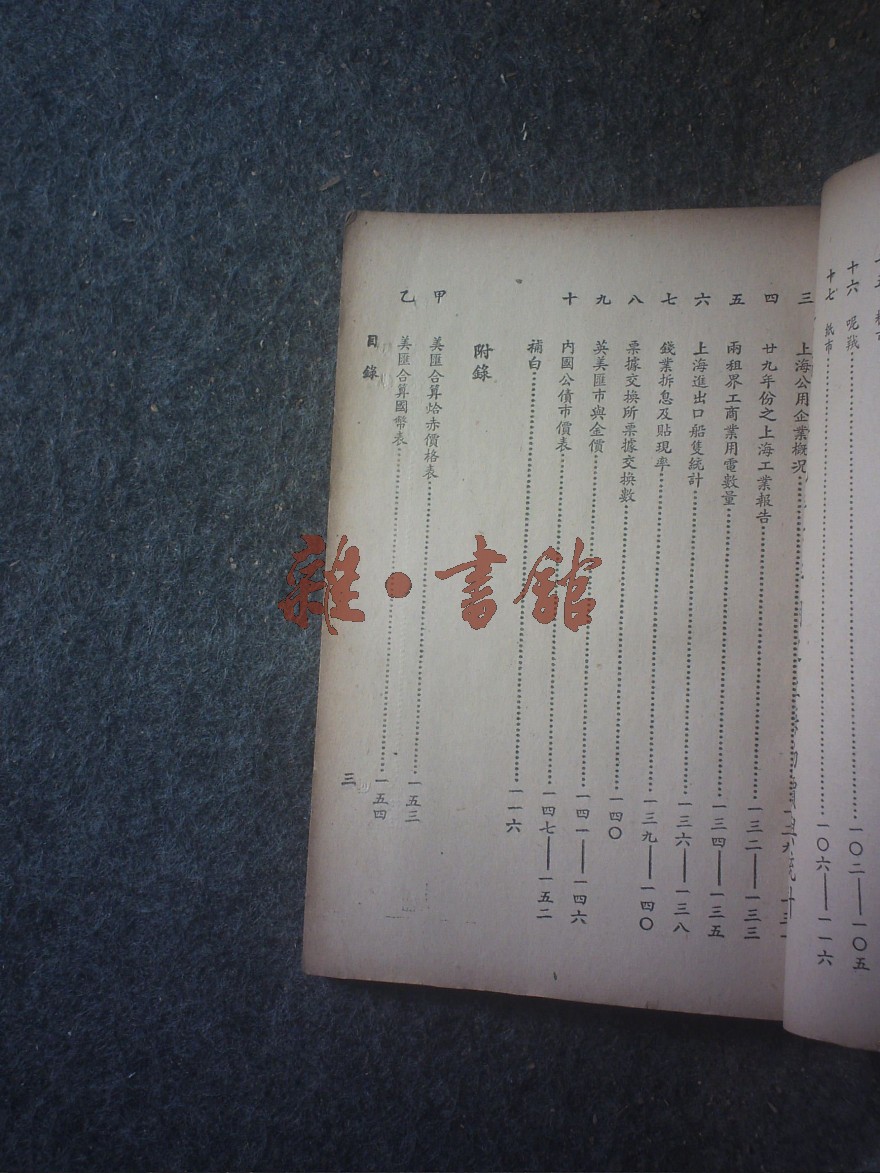 十六 呢羢 一〇二——一〇五
十七 紙市 一〇六——一一六
三 上海公用企業概況
四 廿九年份之上海工業報告 一三二——一三三
五 兩租界工商業用電數量 一三四——一三五
六 上海進出口船隻統計 一三六——一三八
七 錢業拆息及貼現率 一三九——一四〇
八 票據交換所票據交換數 一四〇
九 英美匯市與金價 一四一——一四六
十 內國公債市價表 一四七——一五二
補白 一一六
附錄
甲 美匯合算烚赤價格表 一五三
乙 美匯合算國幣表 一五四
目錄 三
雜·書館